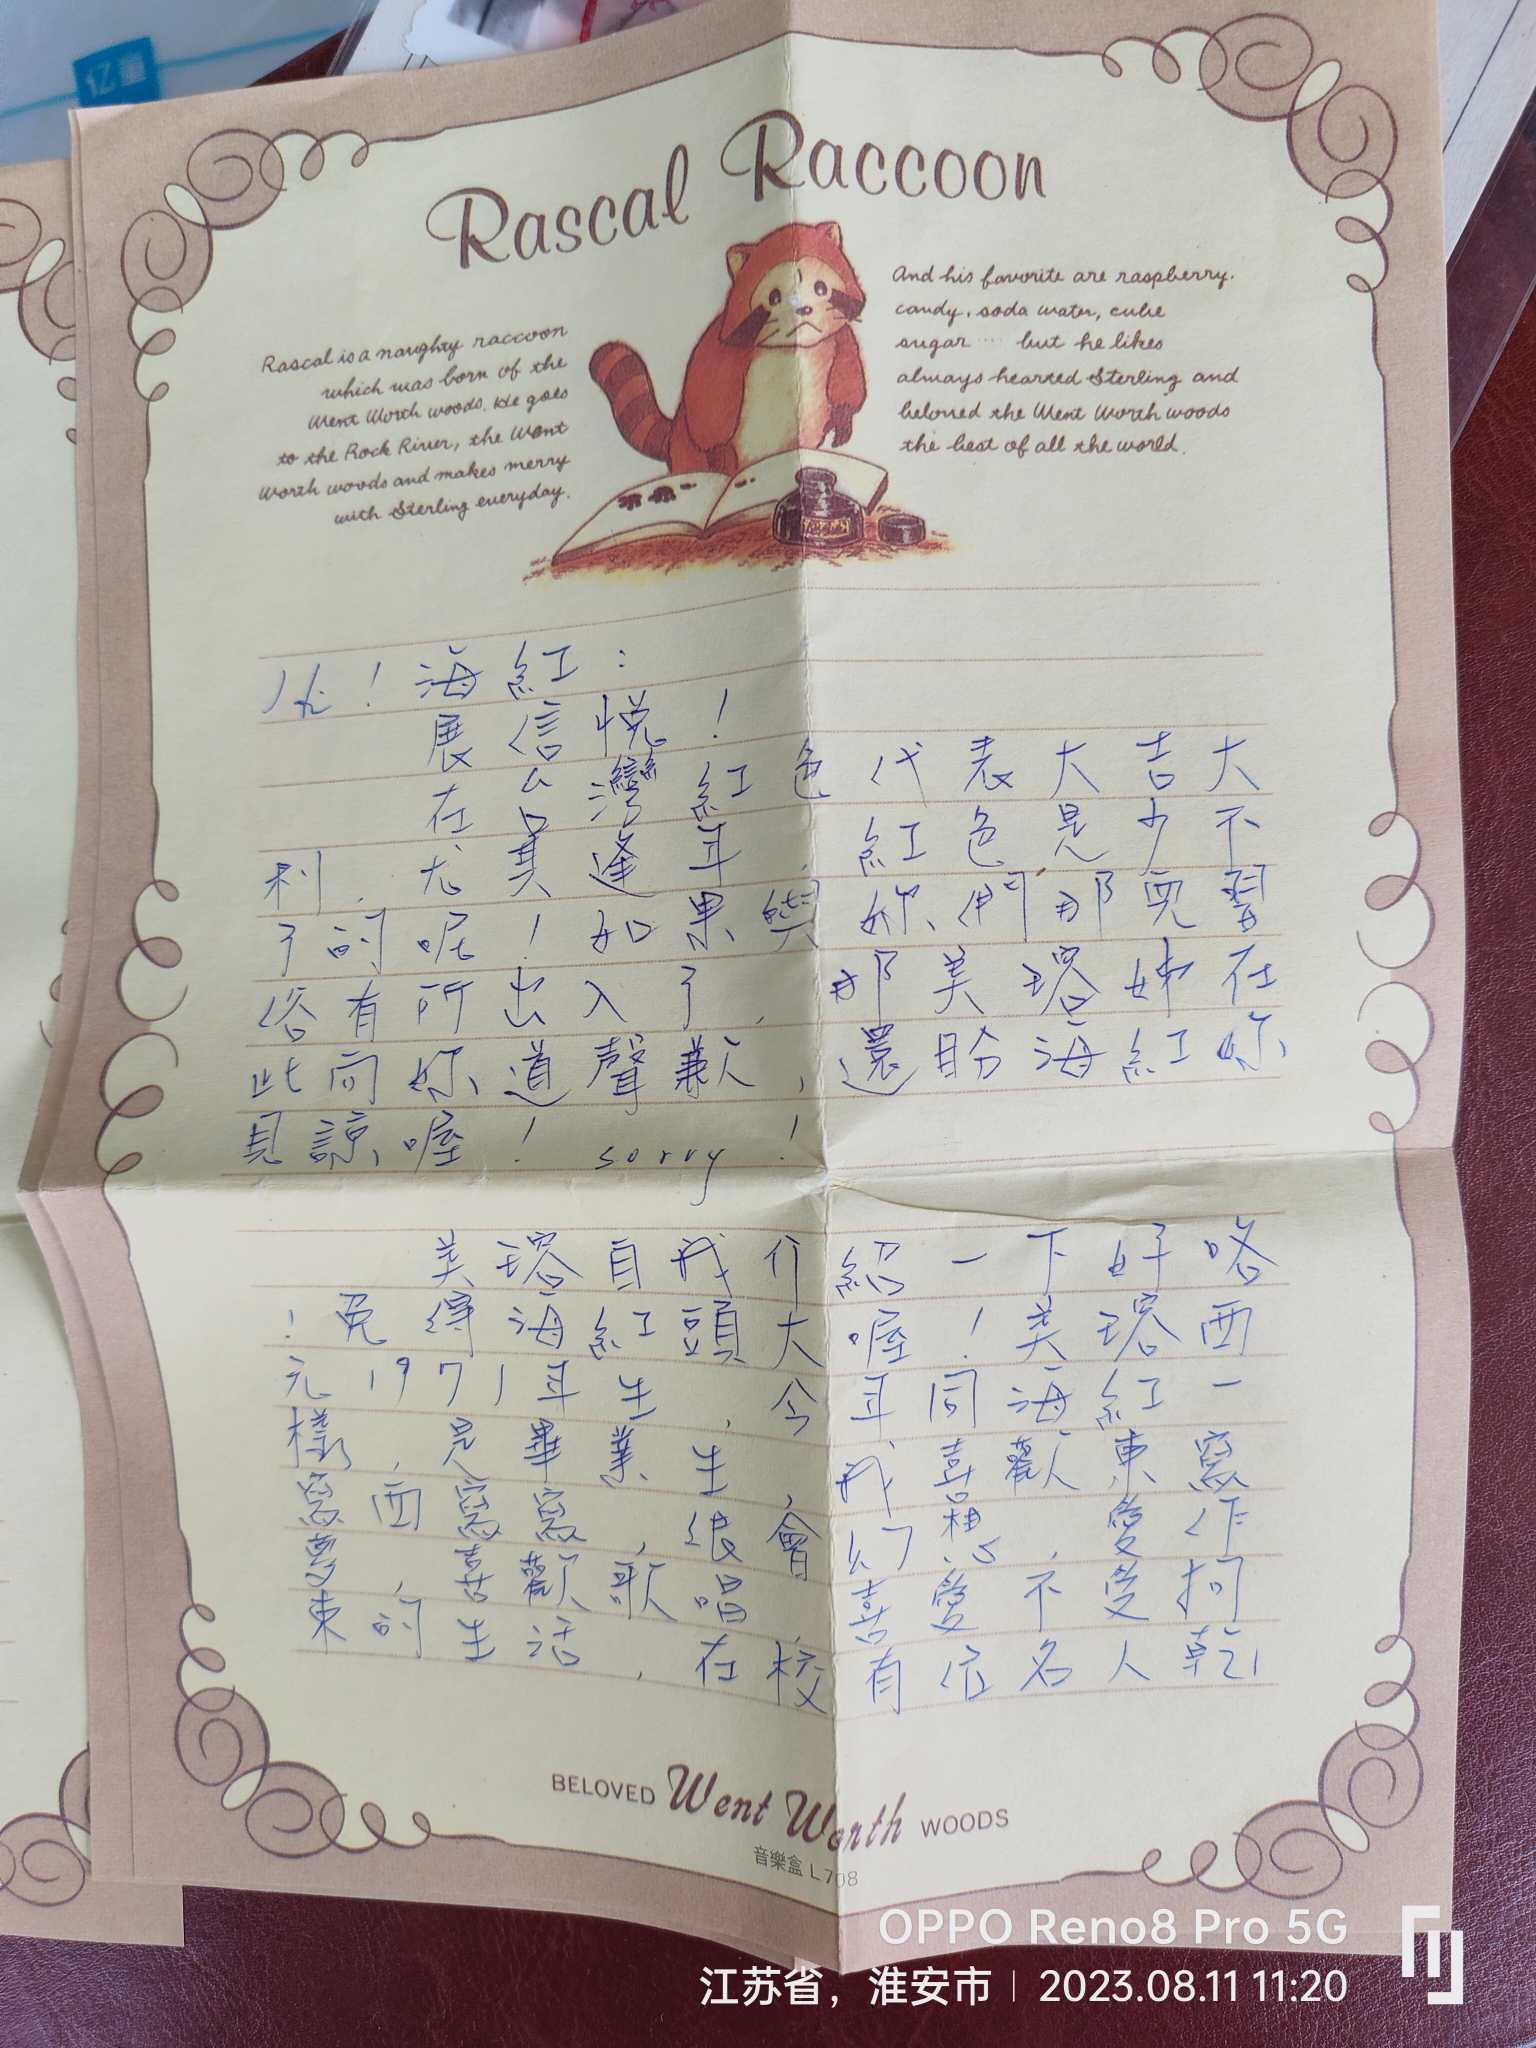 亿童
Rascal Raccoon
Rascal is a naughty raccoon
which was born of the
Went Worth woods. He goes
to the Rock River, the Went
Worth woods and makes merry
with Sterling everyday.
And his favorite are raspberry.
candy, soda water, cube
sugar ···· but he likes
always hearted Sterling and
beloved the Went Worth woods
the best of all the world.
Hi！海紅：
展信悅！
在台灣紅色代表大吉大
利，尤其逢年，紅色是少不
了的呢！如果與妳們那兒習
俗有所出入了，那美瑢姊在
此向妳道聲歉，還盼海紅妳
見諒喔！sorry！
美瑢自我介紹一下好咯
！免得海紅頭大喔！美瑢西
元1971年生，今年同海紅一
樣，是畢業生，我喜歡東寫
寫西寫寫，很會幻想，愛作
夢，喜歡歌唱，喜愛不受拘
束的生活，在校有位名人乾
BELOVED Went Worth WOODS
音樂盒 L708
OPPO Reno8 Pro 5G
江苏省，淮安市 | 2023.08.11 11:20